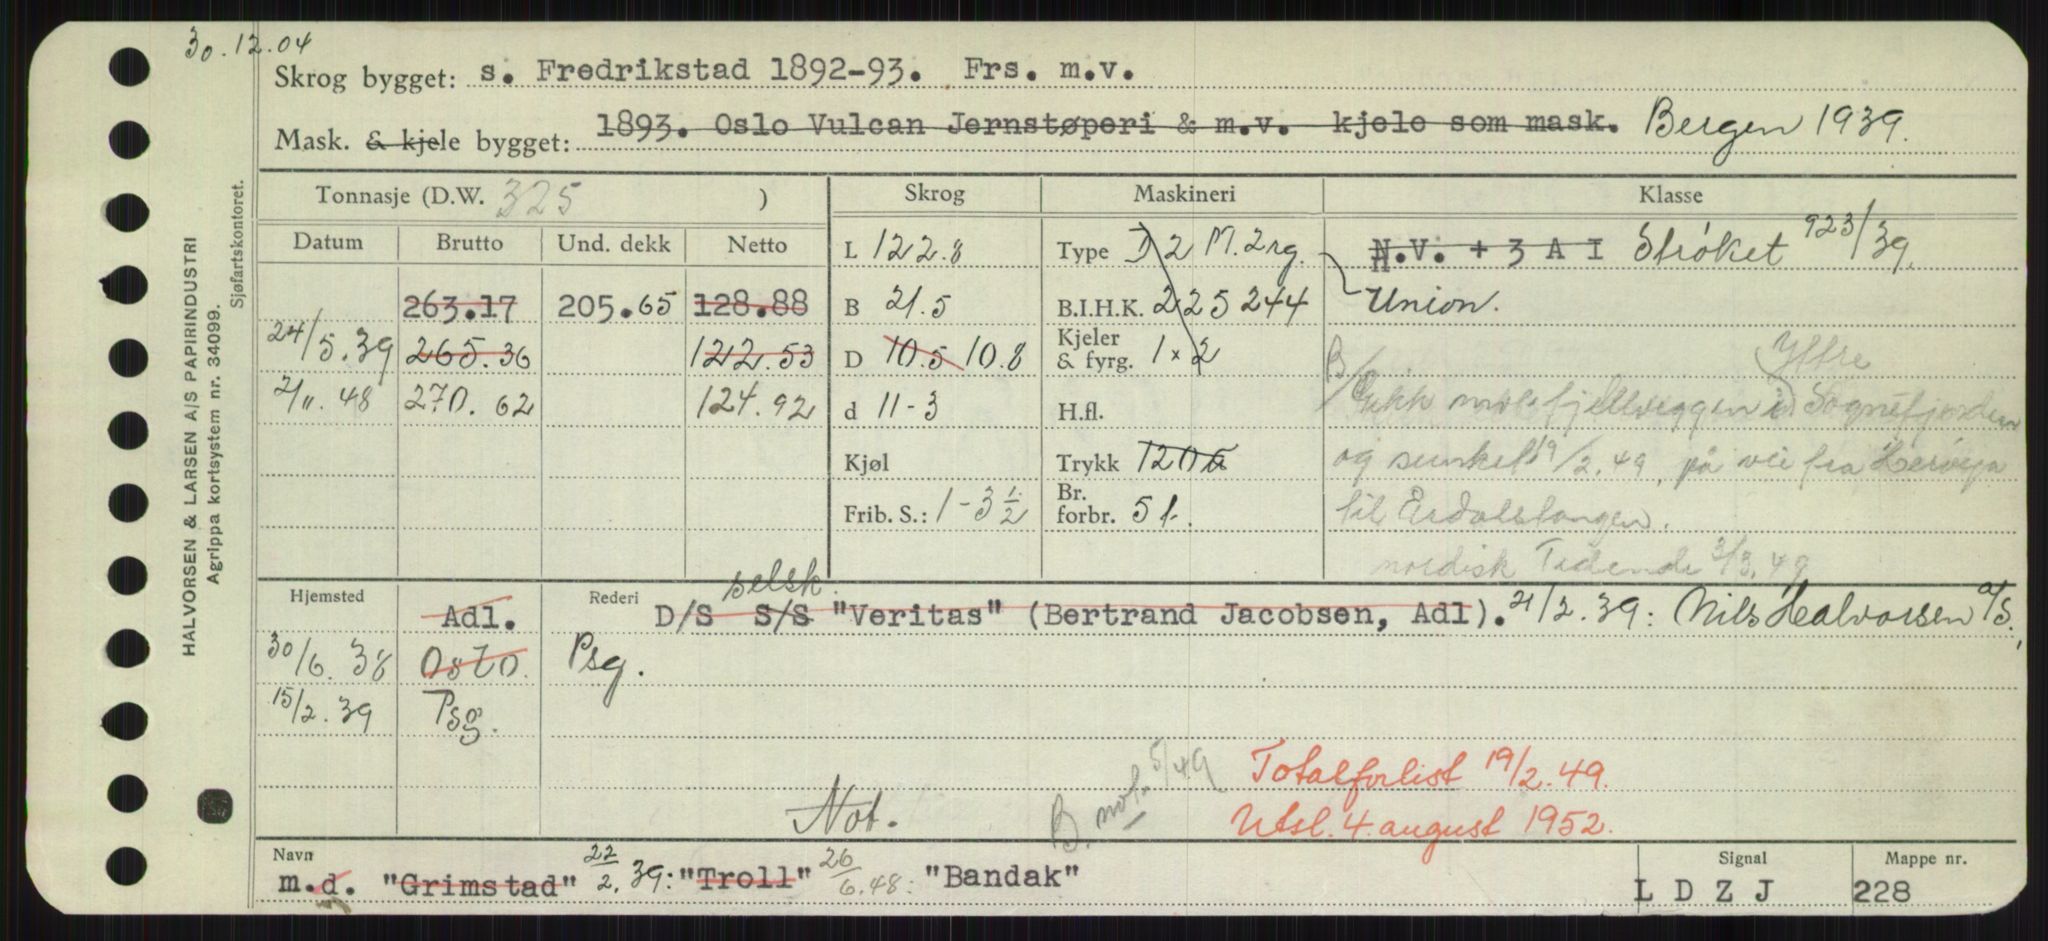 30.12.04
Skrog bygget: s. Fredrikstad 1892-93. Frs. m.v.
Mask. & kjele bygget: 1893. Oslo Vulcan Jernstøperi & m.v. kjele som mask. Bergen 1939.
Tonnasje (D.W. 325 ) Skrog Maskineri Klasse
Datum Brutto Und. dekk Netto L 122.8 Type D 2 M. 2 rg. N.V. + 3 A I Strøket 923/39.
263.17 205.65 128.88 B 21.5 B.I.H.K. 225 244 Union.
24/5.39 265.36 122.53 D 10.5 10.8 Kjeler & fyrg. 1 x 2 Yttre
2/11.48 270.62 124.92 d 11-3 H.fl. B/ Gikk mot fjellveggen i Sognefjorden
Kjøl Trykk 120 og sunket 19/2.49, på vei fra
Frib. S.: 1 - 3 1/2 Br. forbr. 5 t. til Erdalstangen.
nordisk Tidende 3/3.49
selsk.
Hjemsted Adl. Rederi D/S S/S "Veritas" (Bertrand Jacobsen, Adl). 21/2.39: Nils Halvorsen A/S.,
30/6.38 Oslo. Psg.
15/2.39 Psg.
Not. B. mol. 5/49 Totalforlist 19/2.49.
Utsl. 4. august 1952.
Navn Signal Mappe nr.
m.d. "Grimstad" 22/2.39: "Troll" 26/6.48: "Bandak" L D Z J 228
HALVORSEN & LARSEN A/S PAPIRINDUSTRI
Agrippa kortsystem nr. 34099.
Sjøfartskontoret.